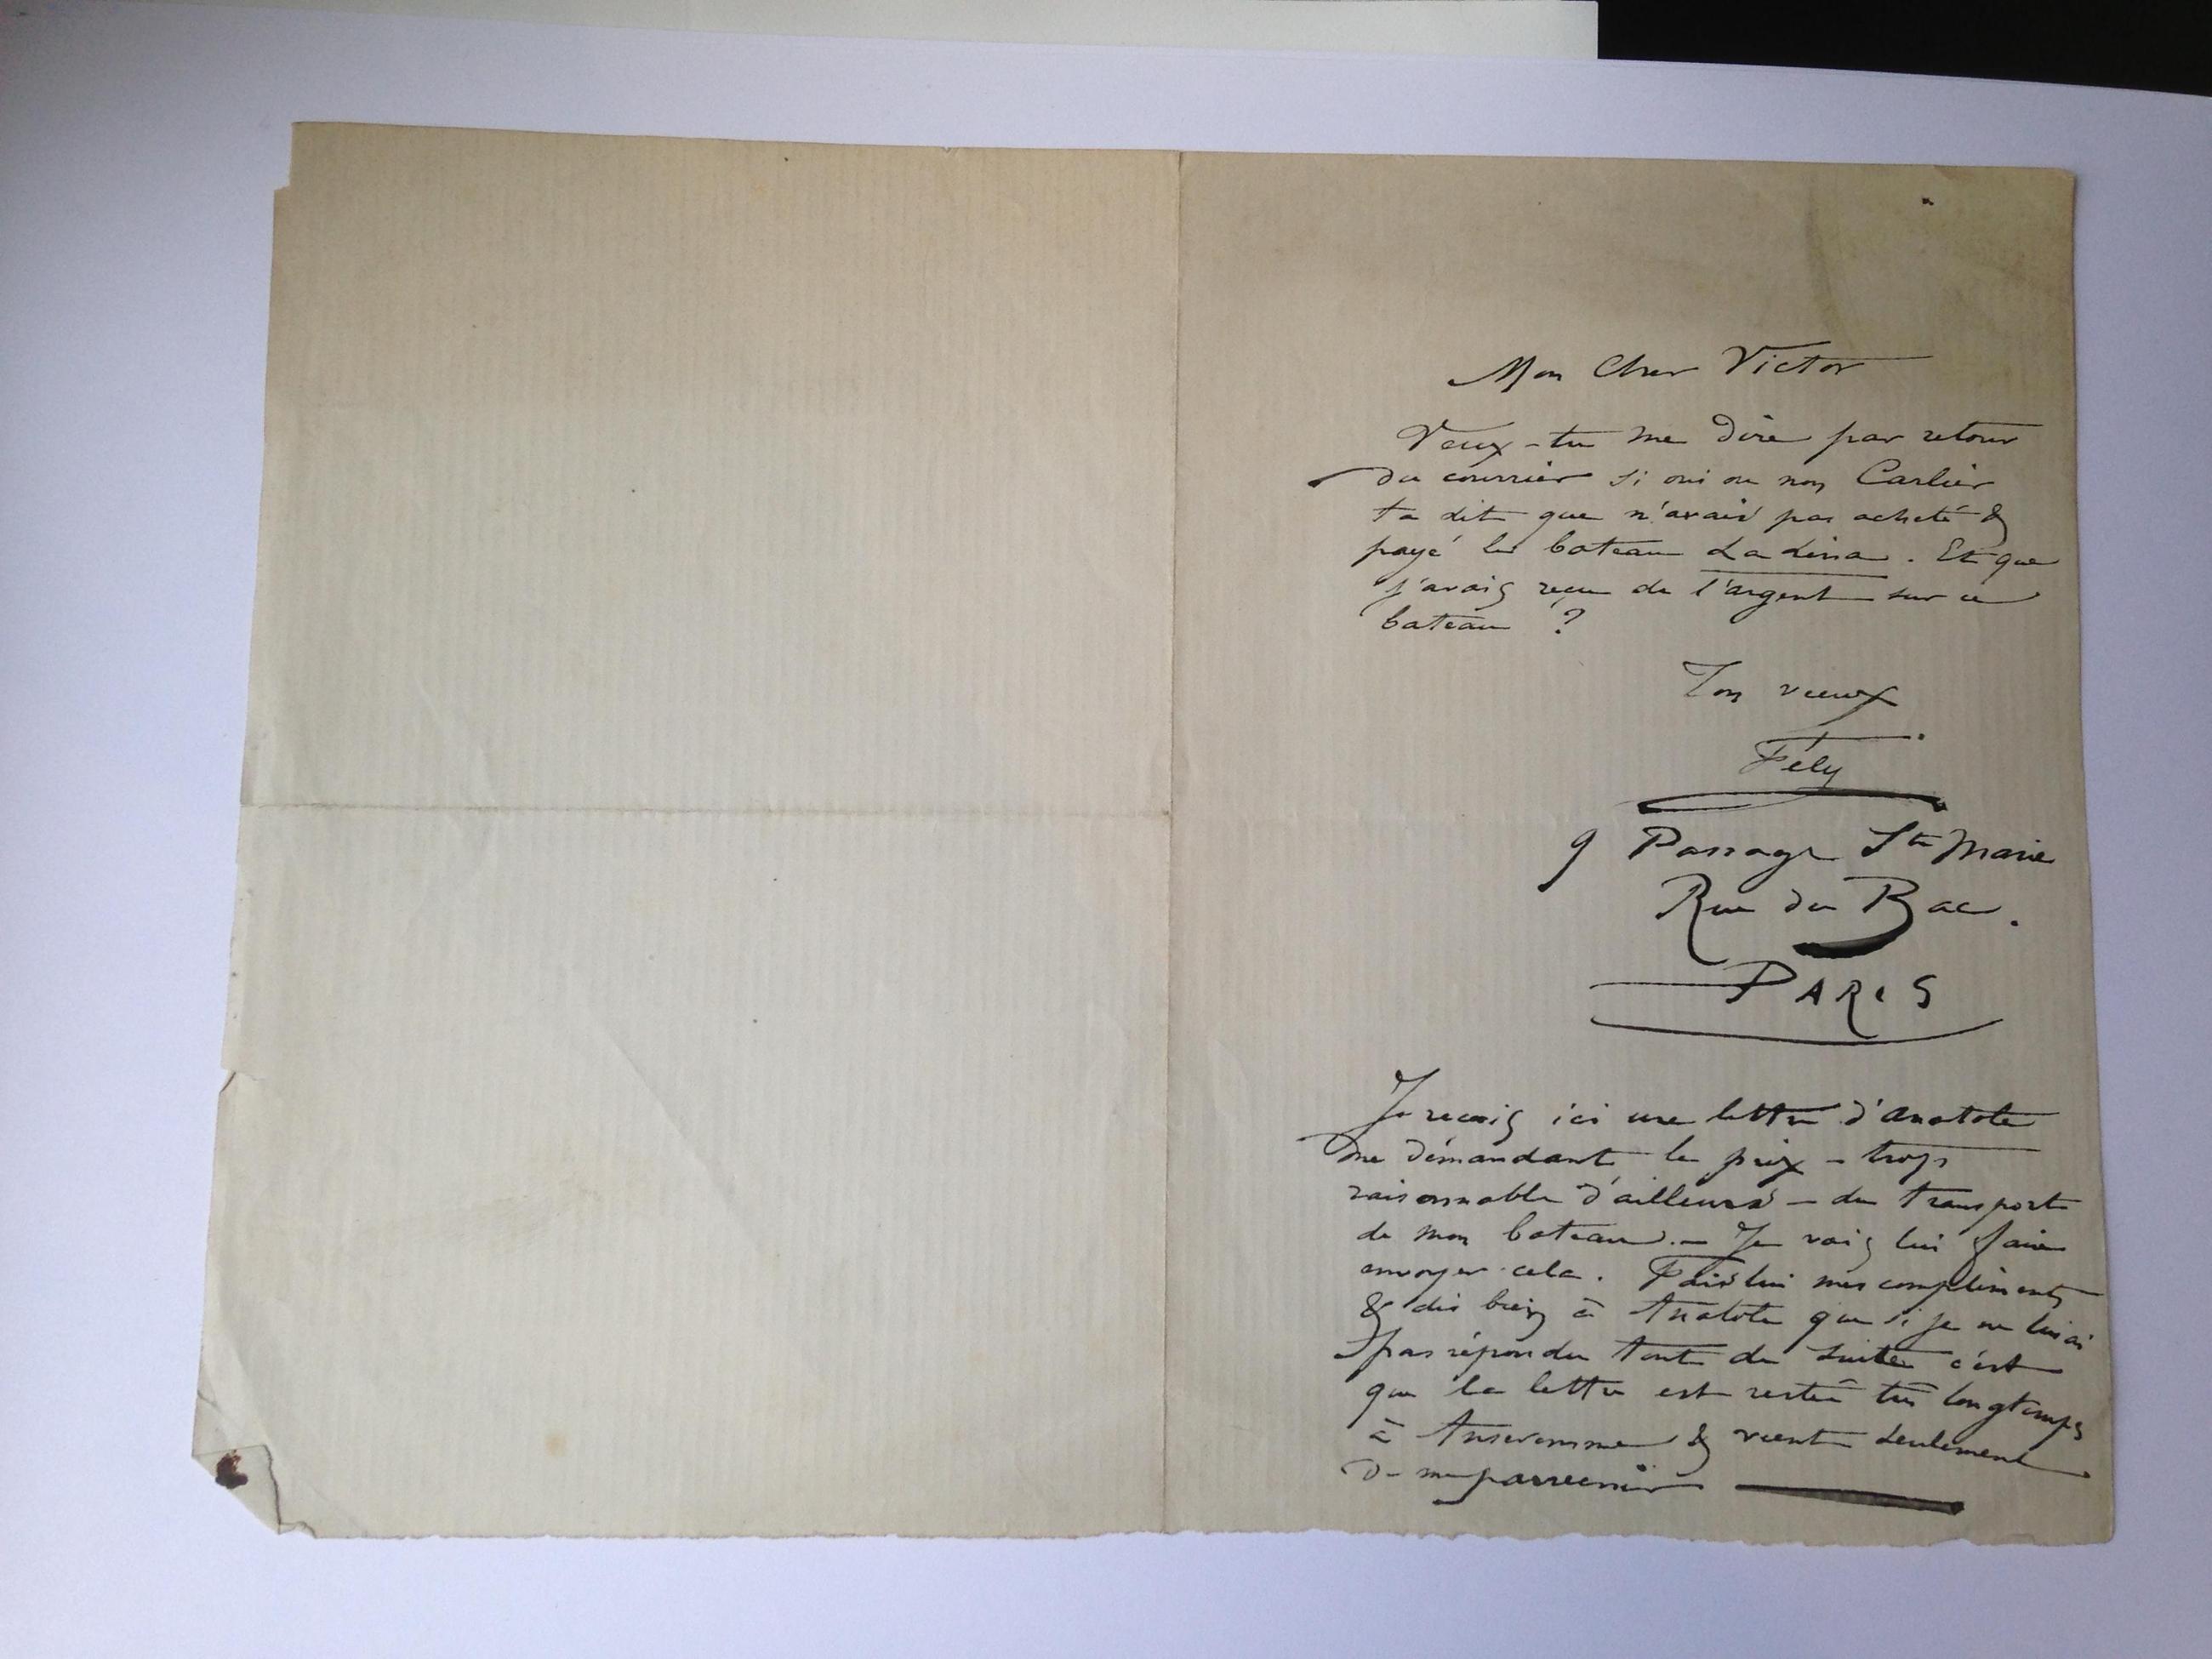 Mon Cher Victor
Veux-tu me dire par retour
du courrier si oui ou non Carlier
t'a dit que n'avais pas acheté &
payé le bateau La Lina. Et que
j'avais reçu de l'argent sur ce
bateau ?
Ton vieux
Fély
9 Passage Ste Marie
Rue du Bac.
PARIS
Je reçois ici une lettre d'Anatole
me démandant le prix - trop
raisonnable d'ailleurs - du transport
de mon bateau. - Je vais lui faire
envoyer cela. Fais lui mes compliments
& dis bien à Anatole que si je ne lui ai
pas répondu tout de suite c'est
que la lettre est restée très longtemps
à Anseremme & vient seulement
de me parvenir